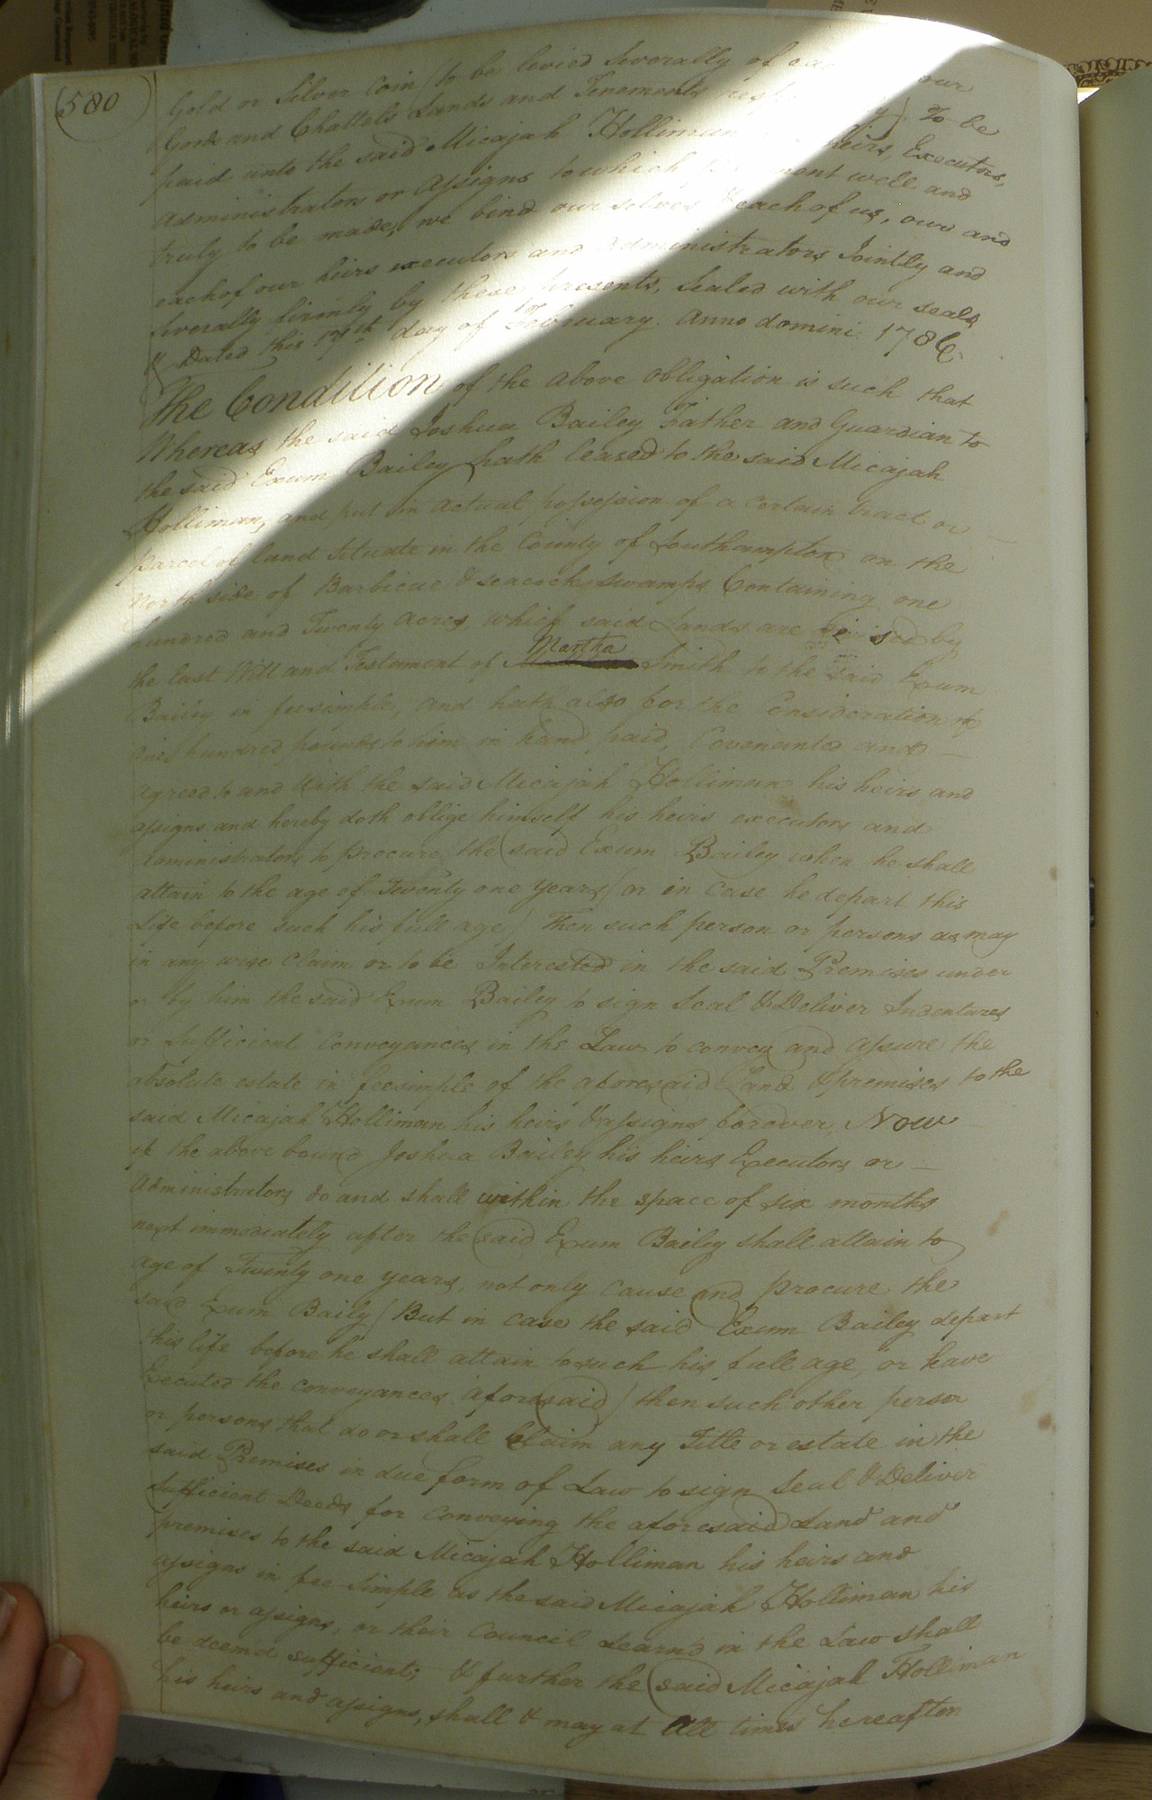 (580)
Gold or Silver Coin (to be levied Severally of our
Goods and Chattels Lands and Tenements To be
paid unto the said Micajah Holliman heirs, Executors,
Administrators or Assigns to which well and
truly to be made, we bind our selves & each of us, our and
each of our heirs executors and Administrators Jointly and
Severally firmly by these presents, Sealed with our seals
& Dated this 17th day of February. Anno domini 1786
The Condition of the above obligation is such that
Whereas the said Joshua Bailey Father and Guardian to
the said Exum Bailey hath leased to the said Micajah
Holliman, and put in actual possession of a certain tract or
parcel of land Situate in the County of Southampton on the
North side of Barbicue & seacock swamps Containing one
hundred and Twenty Acres, which said Lands are by
Martha
the last Will and Testament of Smith to the said Exum
Bailey in feesimple, and hath also for the Consideration of
hundred pounds to him in hand paid, Covenanted and
agreed to and With the said Micajah Holliman his heirs and
assigns and hereby doth oblige himself his heirs executors and
Administrators to procure the said Exum Bailey when he shall
attain to the age of Twenty one Years (or in Case he depart this
Life before such his full age) Then such person or persons as may
in any wise Claim or to be Interested in the said Premises under
or by him the said Exum Bailey to sign Seal & Deliver Indentures
or Sufficient Conveyances in the Law to convey and assure the
absolute estate in feesimple of the aforesaid Land & premises to the
said Micajah Holliman his heirs & assigns forever, Now
if the above bound Joshua Bailey his heirs Executors or
Administrators do and shall within the space of six months
next immediately after the said Exum Bailey shall attain to
age of Twenty one years, not only Cause and procure the
said Exum Baily (But in case the said Exum Bailey depart
this life before he shall attain to such his full age, or have
Executed the Conveyances aforesaid) then such other person
or persons that do or shall Claim any Title or estate in the
said Premises in due form of Law to sign Seal & Deliver
Sufficient Deeds for Conveying the aforesaid Land and
premises to the said Micajah Holliman his heirs and
assigns in fee Simple as the said Micajah Holliman his
heirs or assigns, or their Council Learn'd in the Law shall
be deemd sufficient; & further the said Micajah Holliman
his heirs and assigns, shall & may at All times hereafter